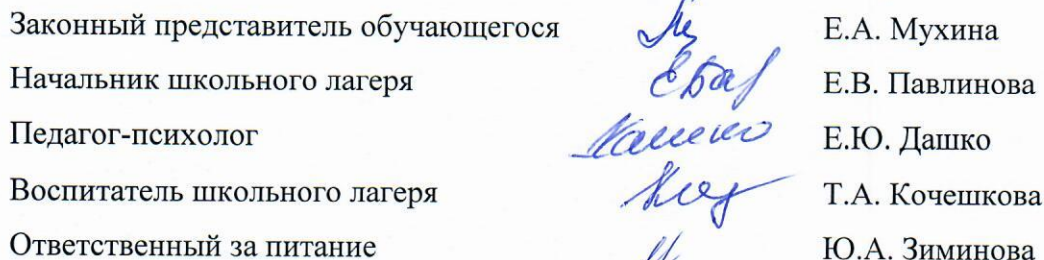 Законный представитель обучающегося Е.А. Мухина
Начальник школьного лагеря Е.В. Павлинова
Педагог-психолог Е.Ю. Дашко
Воспитатель школьного лагеря Т.А. Кочешкова
Ответственный за питание Ю.А. Зиминова